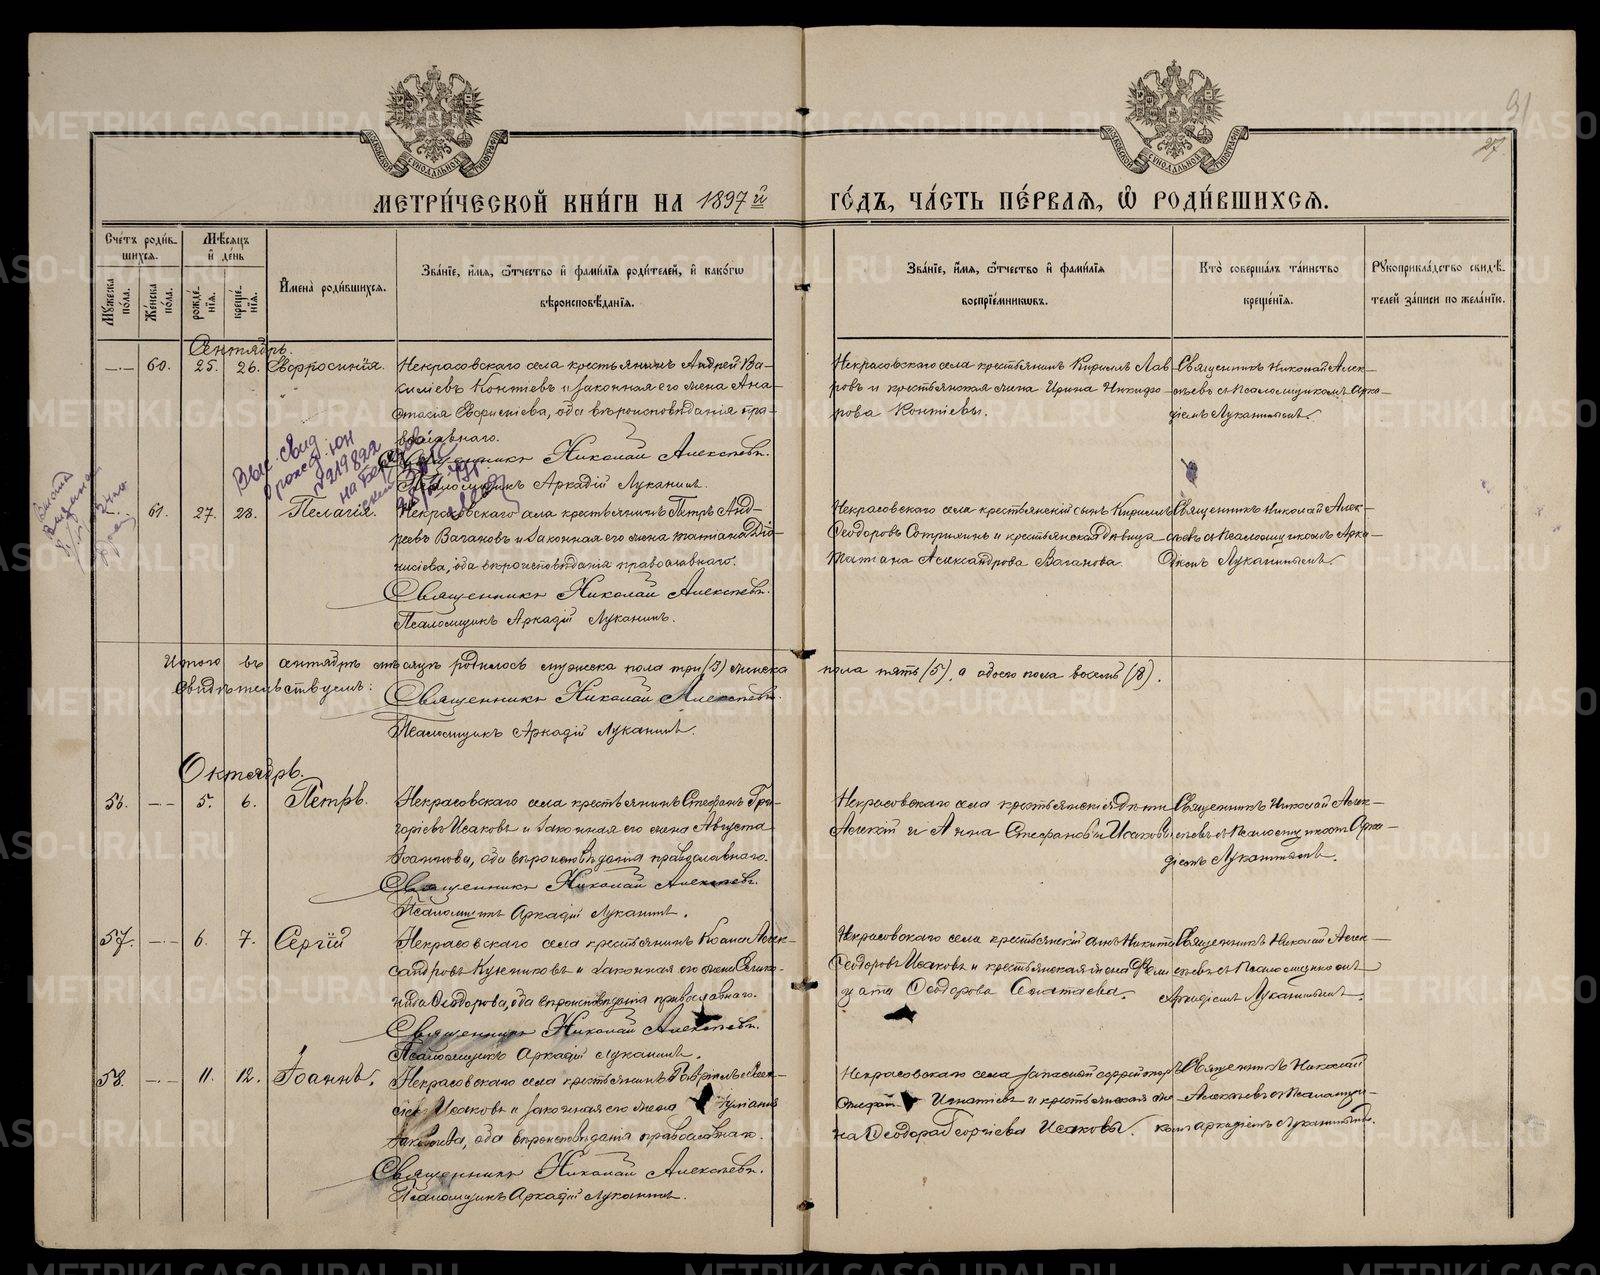 91
27.
МЕТРИ́ЧЕСКОЙ КНИ́ГИ НА 1897й ГО́ДЪ, ЧА́СТЬ ПЕ́РВАѦ, Ѽ РОДИ́ВШИХСѦ.
Сче́тъ роди́в-
шихсѧ.
Мꙋжеска по́ла.
Женска по́ла.
Мѣ́сѧцъ и҆ де́нь
рожде́-
нїѧ.
креще́-
нїѧ.
И҆мена̀ роди́вшихсѧ.
Зва́нїе, и҆́мѧ, ѻ҆́тчество и҆ фами́лїѧ роди́телей, и҆ како́гѡ
вѣроисповѣ́данїѧ.
Зва́нїе, и҆́мѧ, ѻ҆́тчество и҆ фами́лїѧ
воспрїе́мникѡвъ.
Кто̀ соверша́лъ та́инство
креще́нїѧ.
Рꙋкоприкла́дство свидѣ́-
телей за́писи по жела́нїю.
Сентябрь.
60. 25. 26. Евфросинія.
Некрасовскаго села крестьянинъ Андрей Ва-
силіевъ Контіевъ и законная его жена Ана-
стасія, оба вѣроисповѣданія пра-
вославнаго.
Священникъ Николай Алексѣевъ.
Псаломщикъ Аркадій Луканинъ.
Некрасовскаго села крестьянинъ Кириллъ Лав-
ровъ и крестьянская жена Ирина Никифо-
рова Контіевы.
Священникъ Николай Алек-
сѣевъ съ Псаломщикомъ Арка-
діемъ Луканинымъ.
Выс. свид.
о рожд.
№ 219822
61. 27. 28. Пелагія.
Некрасовскаго села крестьянинъ Петръ Анд-
реевъ Вагановъ и законная его жена Татіана Діо-
нисіева, оба вѣроисповѣданія православнаго.
Священникъ Николай Алексѣевъ.
Псаломщикъ Аркадій Луканинъ.
Некрасовскаго села крестьянскій сынъ Кириллъ
Ѳеодоровъ и крестьянская дѣвица
Татіана Александрова Ваганова.
Священникъ Николай Алек-
сѣевъ съ Псаломщикомъ Арка-
діемъ Луканинымъ.
Итого въ сентябрѣ мѣсяцѣ родилось мужеска пола три (3) женска пола пять (5), а обоего пола восемь (8).
Свидѣтельствуемъ:
Священникъ Николай Алексѣевъ.
Псаломщикъ Аркадій Луканинъ.
Октябрь.
56. 5. 6. Петръ.
Некрасовскаго села крестьянинъ Стефанъ Гри-
горіевъ Исаковъ и законная его жена Августа
Іоаннова, оба вѣроисповѣданія православнаго.
Священникъ Николай Алексѣевъ.
Псаломщикъ Аркадій Луканинъ.
Некрасовскаго села крестьянскія дѣти
Алексій и Анна Стефановы Исаковы
Священникъ Николай Алек-
сѣевъ съ Псаломщикомъ Арка-
діемъ Луканинымъ.
57. 6. 7. Сергій
Некрасовскаго села крестьянинъ Іоаннъ Алек-
сандровъ и законная его жена
Ѳеодорова, оба вѣроисповѣданія православнаго.
Священникъ Николай Алексѣевъ.
Псаломщикъ Аркадій Луканинъ.
Некрасовскаго села крестьянскій сынъ Никита
Ѳеодоровъ Исаковъ и крестьянская жена
Ѳеодорова
Священникъ Николай Алек-
сѣевъ съ Псаломщикомъ
Аркадіемъ Луканинымъ.
58. 11. 12. Іоаннъ.
Некрасовскаго села крестьянинъ Гавріилъ Алек-
сіевъ Исаковъ и законная его жена Іуліанія
оба вѣроисповѣданія православнаго.
Священникъ Николай Алексѣевъ.
Псаломщикъ Аркадій Луканинъ.
Некрасовскаго села запасной ефрейторъ
Стефанъ Игнатіевъ и крестьянская же-
на Ѳеодора Георгіева Исаковы.
Священникъ Николай
Алексѣевъ съ Псаломщи-
комъ Аркадіемъ Луканинымъ.
METRIKI.GASO-URAL.RU